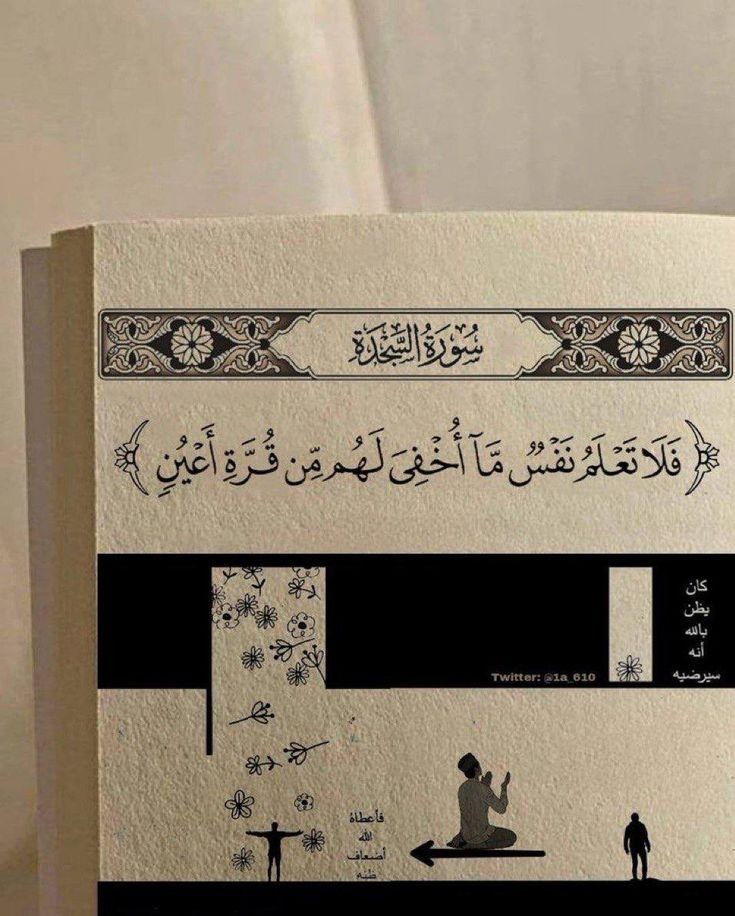 سُورَةُ السَّجْدَةِ
﴿فَلَا تَعْلَمُ نَفْسٌ مَّآ أُخْفِىَ لَهُم مِّن قُرَّةِ أَعْيُنٍ﴾
كان
يظن
بالله
أنه
سيرضيه
Twitter: @1a_610
فأعطاة
الله
أضعاف
ظنه